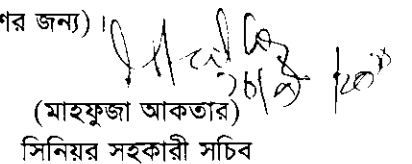 ণর জন্য)।
(মাহফুজা আকতার)
সিনিয়র সহকারী সচিব